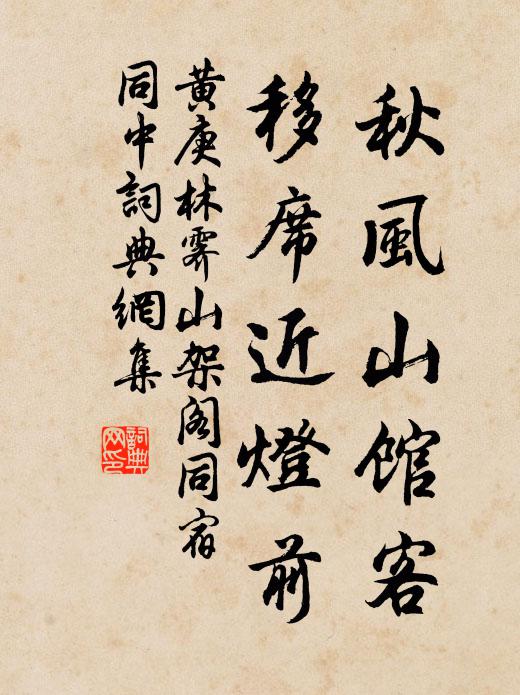 秋風山館客
移席近燈前
黃庚林霽山架閣同宿
同中詞典網集
詞典网印